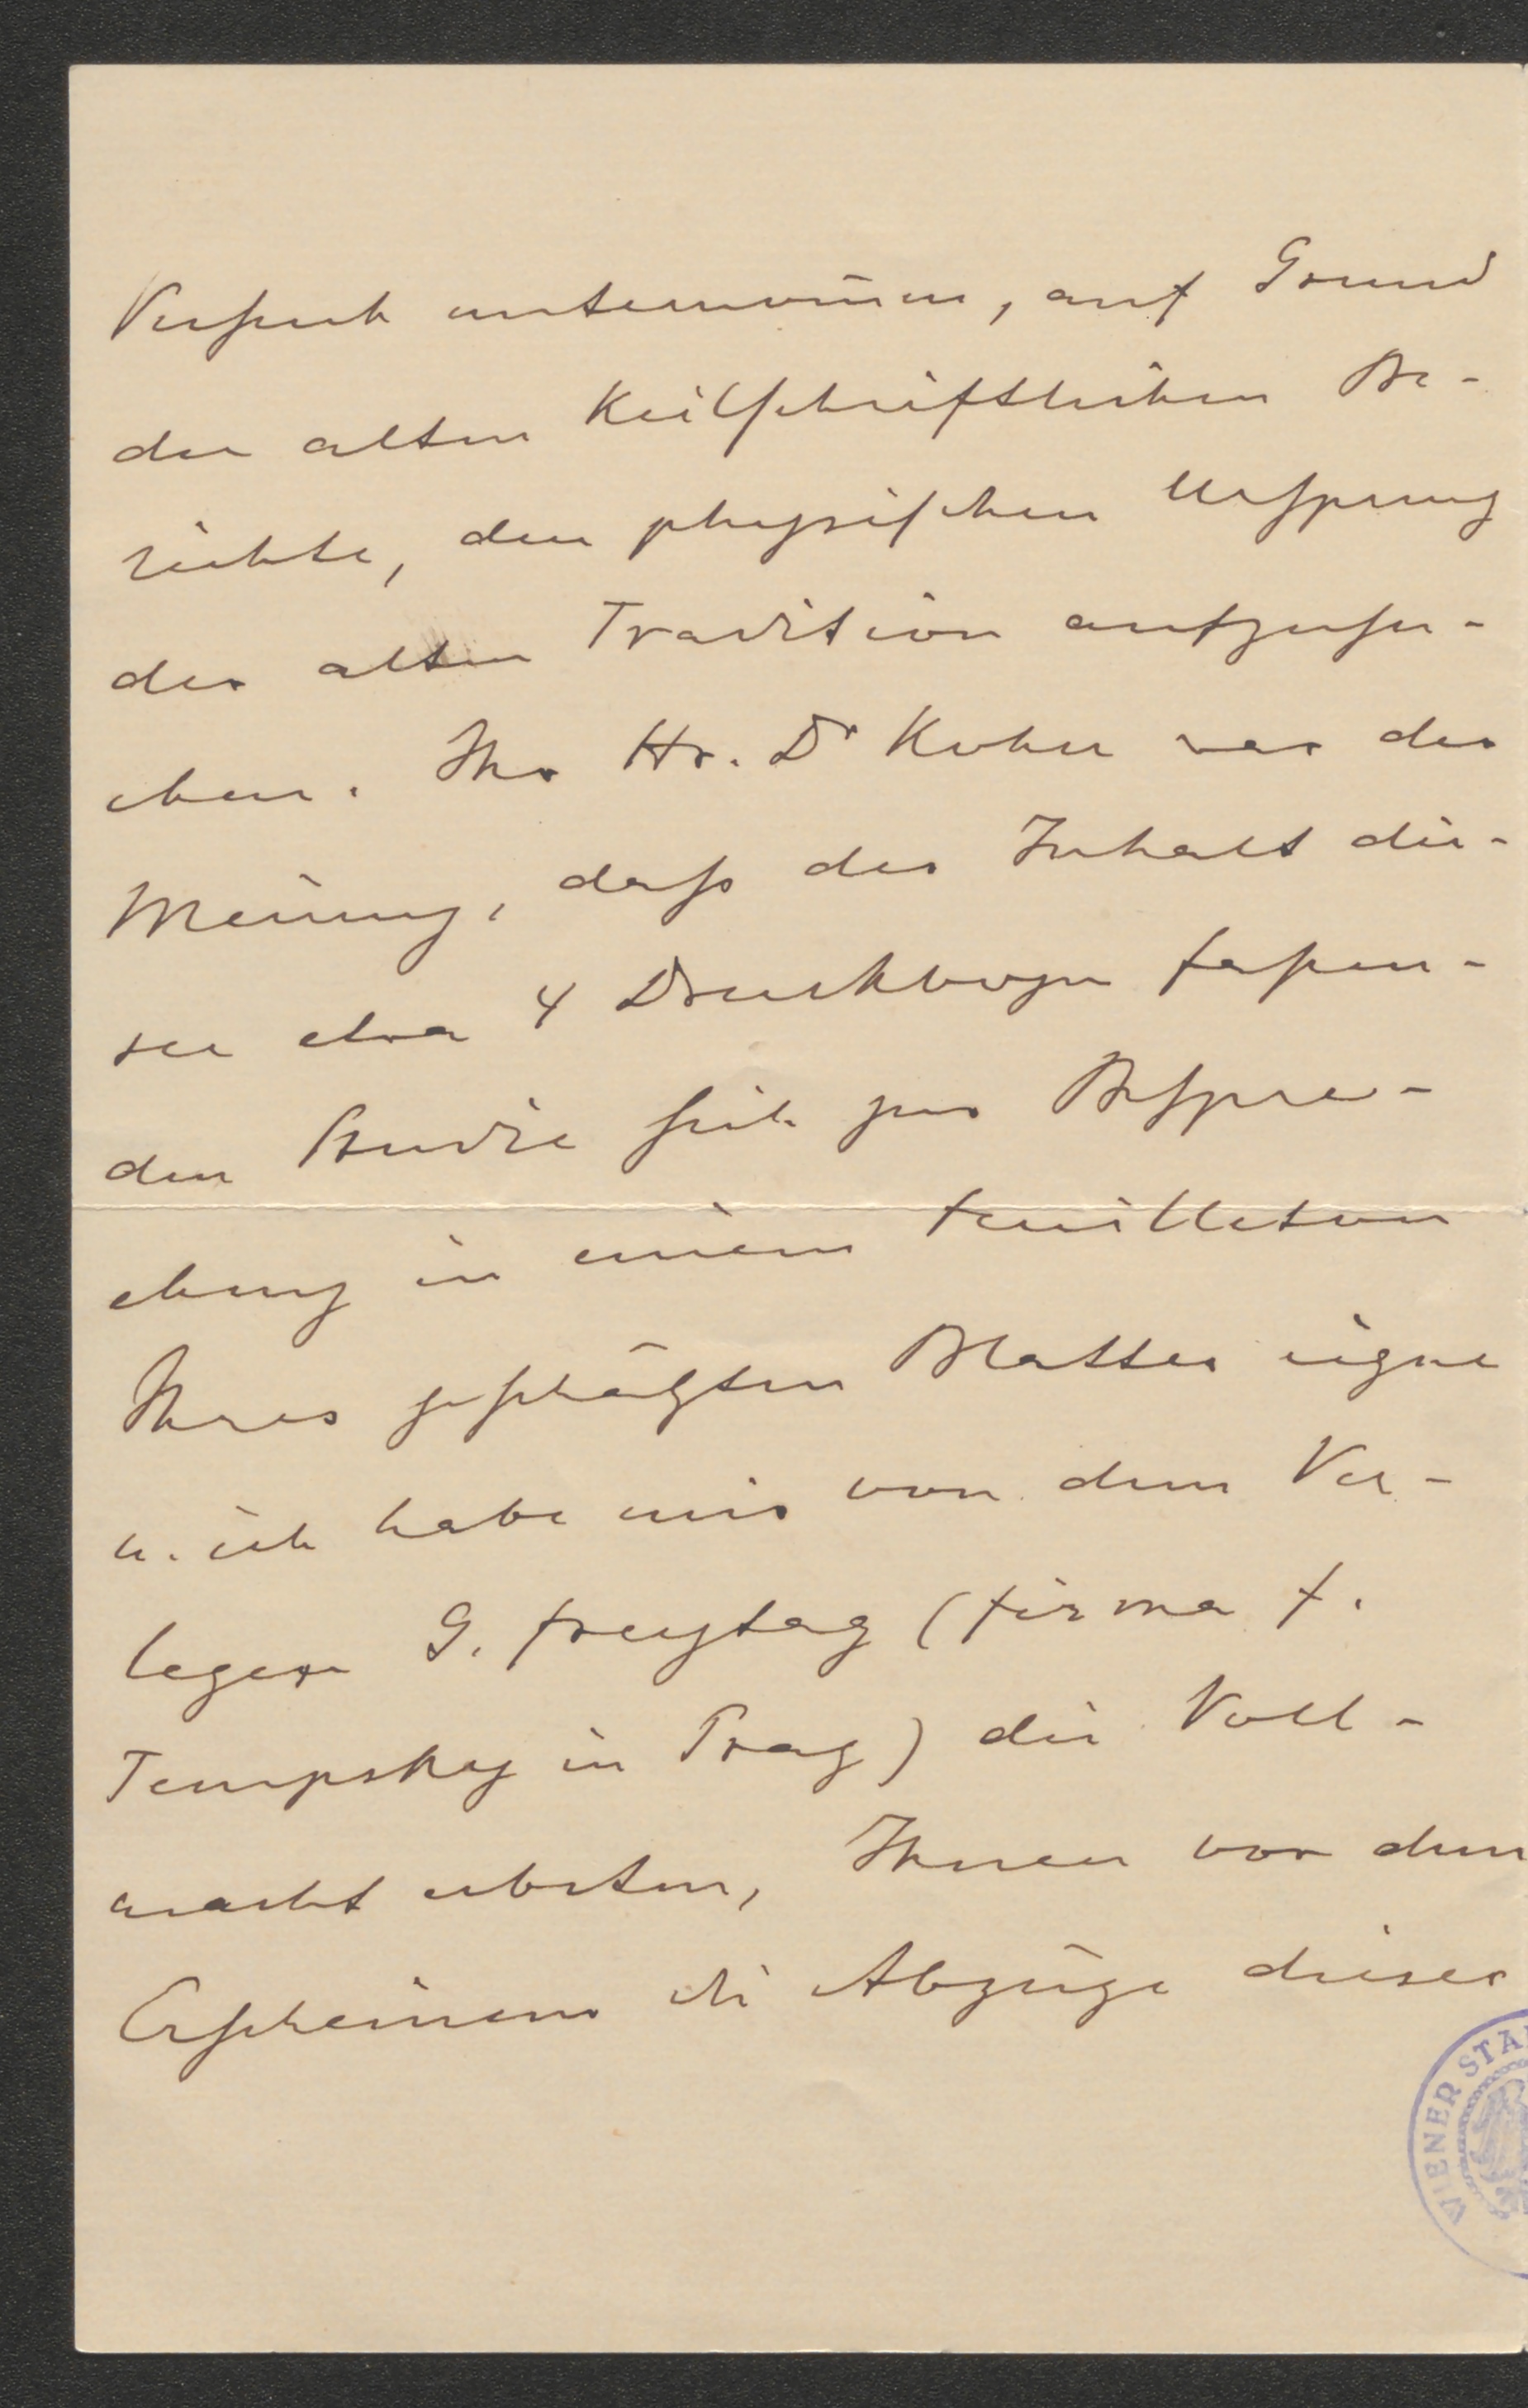 Versuch unternom̅en, auf Grund
der alten Keilschriftlichen Be-
richte, den physischen Ursprung
der alten Tradition aufzusu-
chen. Ihr Hr. Dr Kohn war der
Meinung, daß der Inhalt die-
ser etwa 4 Druckbogen fassen-
den Studie sich zur Bespre-
chung in einem Feuilleton
Ihres geschätzten Blattes eigne
u. ich habe mir von dem Ver-
leger G. Freytag (Firma F.
Tempsky in Prag) die Voll-
macht erbeten, Ihnen vor dem
Erscheinen die Abzüge dieser
WIENER STA